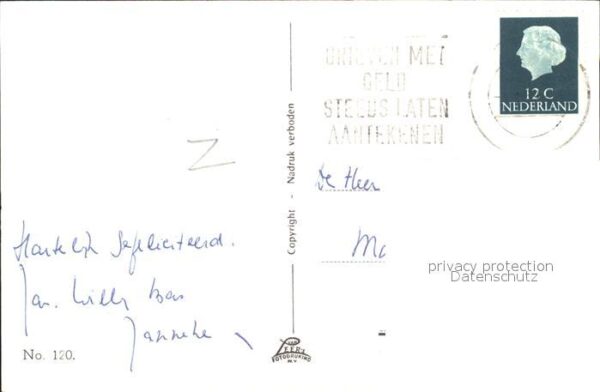 BRIEVEN MET
GELD
STEEDS LATEN
AANTEKENEN
12 C
NEDERLAND
Z
Hartelijk Gefeliciteerd.
Jan. Willy Bas
Janneke
No. 120.
Copyright - Nadruk verboden
De Heer
privacy protection
Datenschutz
VAN
LEER'S
FOTODRUKIND
N.V.